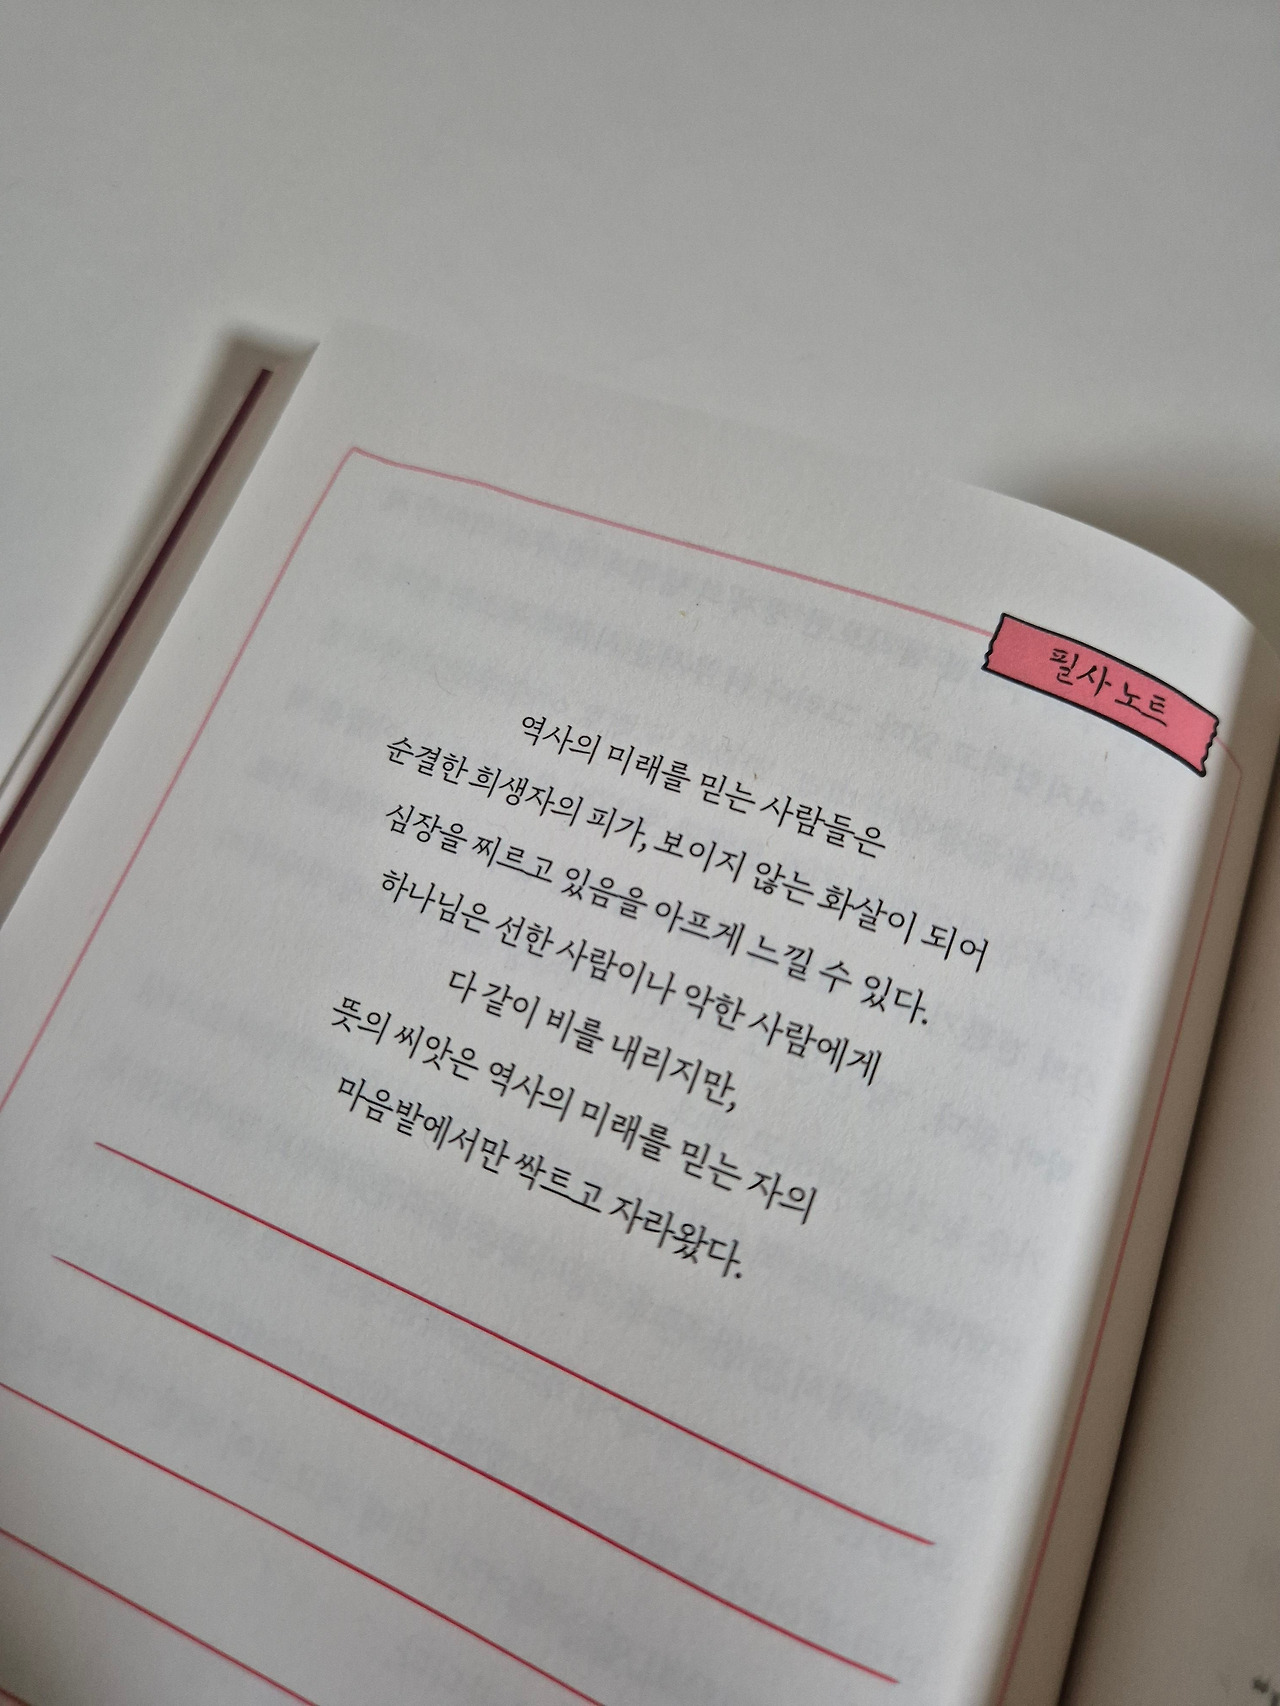 필사 노트
역사의 미래를 믿는 사람들은
순결한 희생자의 피가, 보이지 않는 화살이 되어
심장을 찌르고 있음을 아프게 느낄 수 있다.
하나님은 선한 사람이나 악한 사람에게
다 같이 비를 내리지만,
뜻의 씨앗은 역사의 미래를 믿는 자의
마음밭에서만 싹트고 자라왔다.